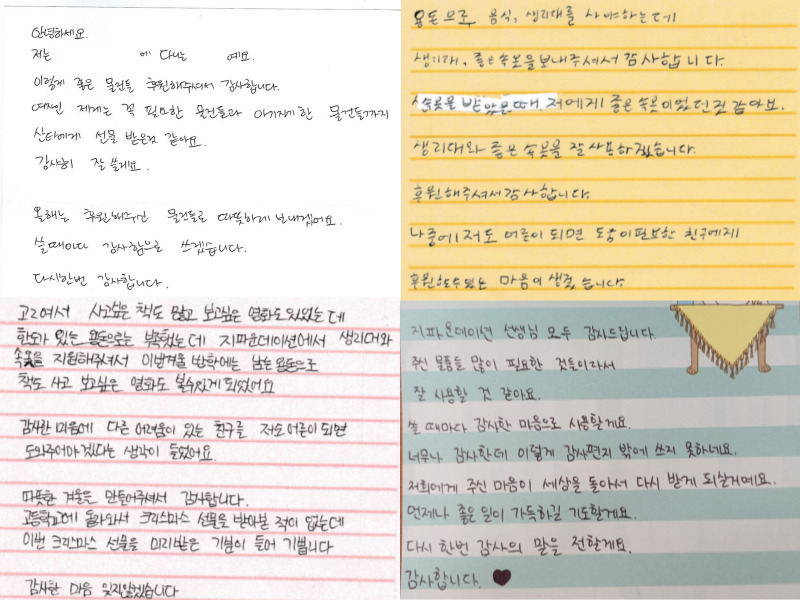 안녕하세요.
저는 에 다니는 예요.
이렇게 좋은 물건들 후원해주셔서 감사합니다.
여자인 제게는 꼭 필요한 물건들과 아기자기한 물건들까지
산타에게 선물 받은것 같아요.
감사히 잘 쓸게요.
올해는 후원해주신 물건들로 따뜻하게 보내겠어요.
쓸때마다 감사함으로 쓰겠습니다.
다시한번 감사합니다.
용돈으로 음식, 생리대를 사야하는데
생리대, 좋은속옷을보내주셔서감사합니다.
속옷을 받았을때, 저에게 좋은 속옷이었던것 같아요.
생리대와 좋은 속옷을 잘사용하겠습니다.
후원해주셔서감사합니다.
나중에 저도 어른이 되면 도움이필요한 친구에게
후원할수있는 마음이 생겼습니다.
고2여서 사고싶은 책도 많고 보고싶은 영화도있었는데
한도가 있는 용돈으로는 부족했는데 지파운데이션에서 생리대와
속옷을 지원해주셔서 이번겨울 방학에는 남는 용돈으로
책도 사고 보고싶은 영화도 볼수있게 되었어요
감사한 마음에 다른 어려움이 있는 친구를 저도어른이 되면
도와주어야겠다는 생각이 들었어요.
따뜻한 겨울을 만들어주셔서 감사합니다.
고등학교에 올라와서 크리스마스 선물을 받아본 적이 없는데
이번 크리스마스 선물을 미리받은 기분이 들어 기쁩니다
감사한 마음 잊지않겠습니다
지파운데이션 선생님 모두 감사드립니다.
주신 물품들 많이 필요한 것들이라서
잘 사용할 것 같아요.
쓸 때마다 감사한 마음으로 사용할게요.
너무나 감사한데 이렇게 감사편지 밖에 쓰지 못하네요.
저희에게 주신 마음이 세상을 돌아서 다시 받게 되실거예요.
언제나 좋은 일이 가득하길 기도할게요.
다시 한번 감사의 말을 전할게요.
감사합니다. ♥